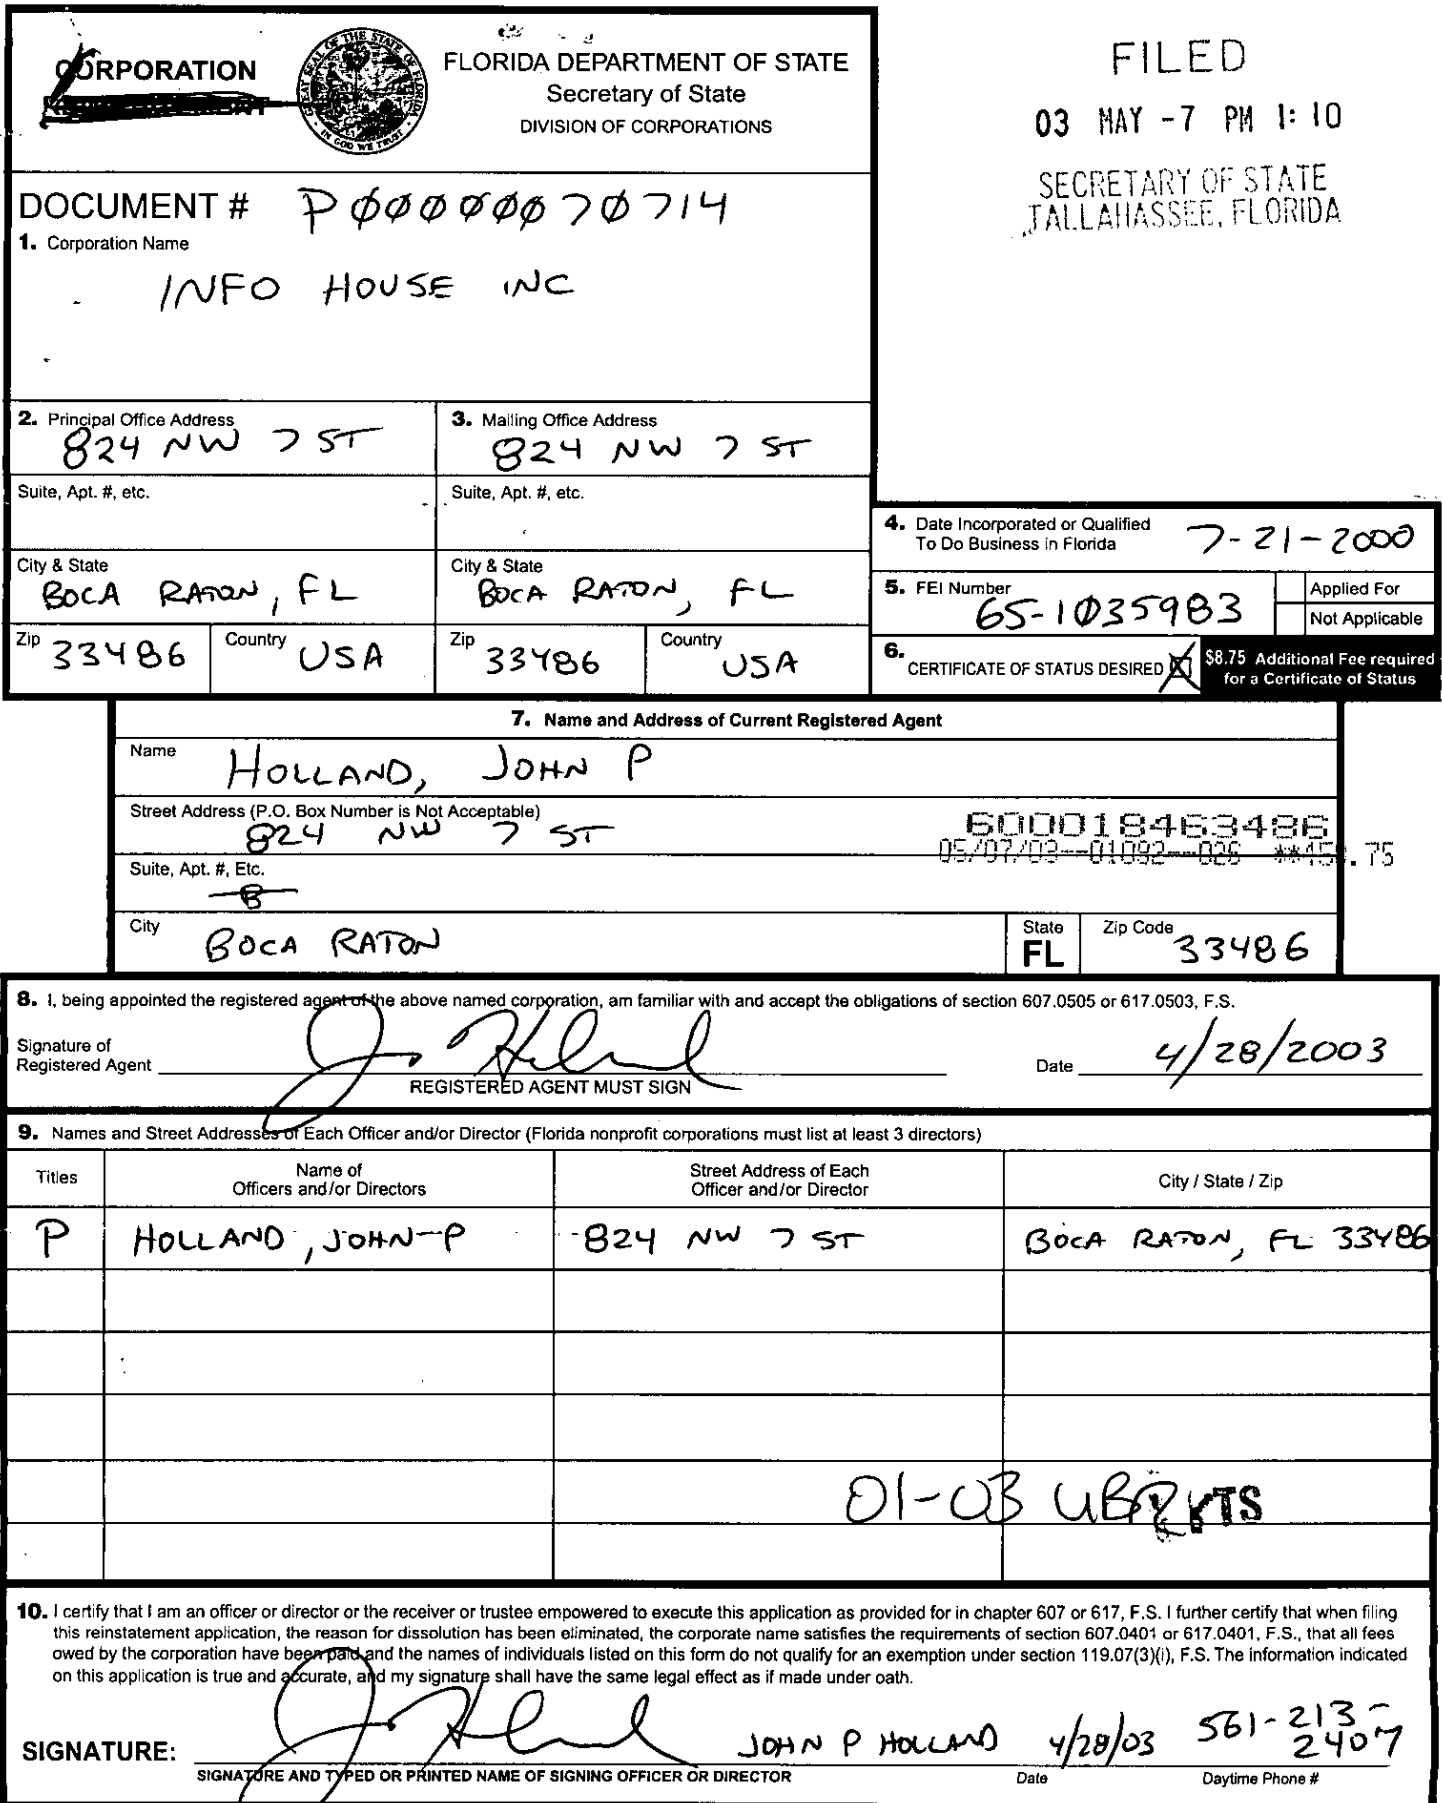 CORPORATION
FLORIDA DEPARTMENT OF STATE
Secretary of State
DIVISION OF CORPORATIONS
FILED
03 MAY -7 PM 1:10
SECRETARY OF STATE
TALLAHASSEE, FLORIDA
DOCUMENT # P00000070714
1. Corporation Name
INFO HOUSE INC
2. Principal Office Address
824 NW 7 ST
3. Mailing Office Address
824 NW 7 ST
Suite, Apt. #, etc.
Suite, Apt. #, etc.
City & State
BOCA RATON, FL
City & State
BOCA RATON, FL
Zip 33486
Country USA
Zip 33486
Country USA
4. Date Incorporated or Qualified
To Do Business in Florida 7-21-2000
5. FEI Number
65-1035983
Applied For
Not Applicable
6. CERTIFICATE OF STATUS DESIRED
$8.75 Additional Fee required
for a Certificate of Status
7. Name and Address of Current Registered Agent
Name HOLLAND, JOHN P
Street Address (P.O. Box Number is Not Acceptable)
824 NW 7 ST
600018463486
05/07/03--01092--026
Suite, Apt. #, Etc.
City BOCA RATON
State
FL
Zip Code 33486
8. I, being appointed the registered agent of the above named corporation, am familiar with and accept the obligations of section 607.0505 or 617.0503, F.S.
Signature of
Registered Agent
REGISTERED AGENT MUST SIGN
Date 4/28/2003
9. Names and Street Addresses of Each Officer and/or Director (Florida nonprofit corporations must list at least 3 directors)
Titles
Name of
Officers and/or Directors
Street Address of Each
Officer and/or Director
City / State / Zip
P HOLLAND, JOHN P 824 NW 7 ST BOCA RATON, FL 33486
01-03 UBR KTS
10. I certify that I am an officer or director or the receiver or trustee empowered to execute this application as provided for in chapter 607 or 617, F.S. I further certify that when filing
this reinstatement application, the reason for dissolution has been eliminated, the corporate name satisfies the requirements of section 607.0401 or 617.0401, F.S., that all fees
owed by the corporation have been paid and the names of individuals listed on this form do not qualify for an exemption under section 119.07(3)(i), F.S. The information indicated
on this application is true and accurate, and my signature shall have the same legal effect as if made under oath.
SIGNATURE: JOHN P HOLLAND 4/28/03 561-213-
2407
SIGNATURE AND TYPED OR PRINTED NAME OF SIGNING OFFICER OR DIRECTOR
Date
Daytime Phone #